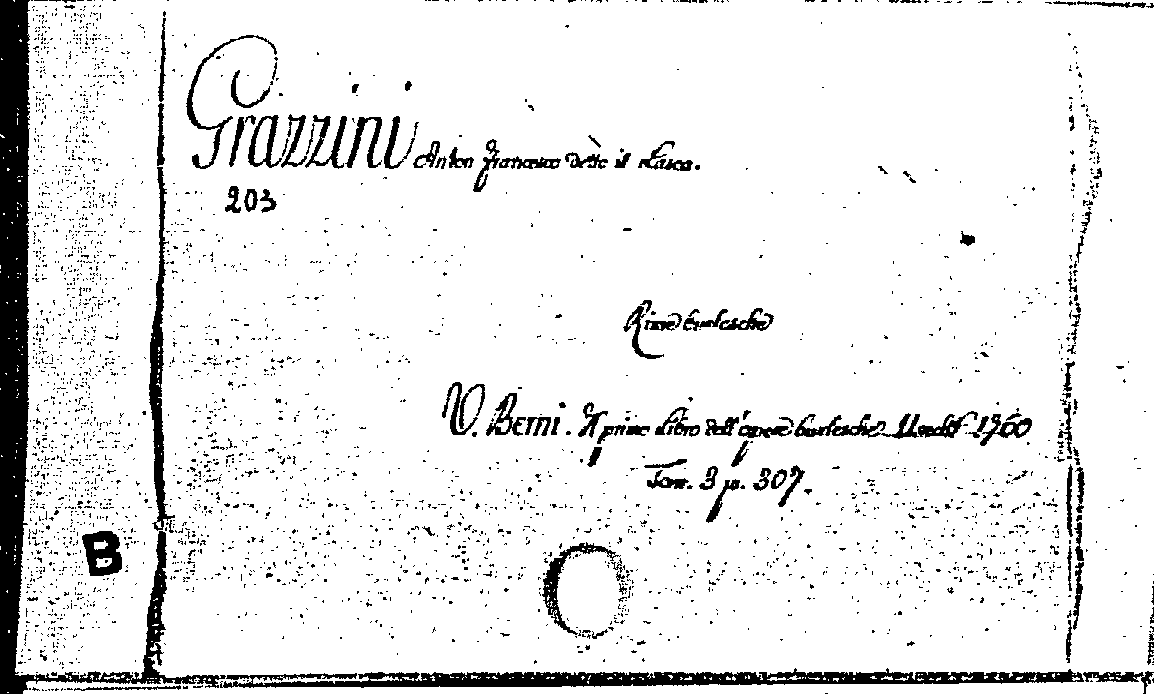 Grazzini Anton Francesco detto il Lasca.
203
Rime burlesche
V. Berni. Il primo libro dell'opere burlesche Utrecht 1760
Tom. 3 p. 307.
B